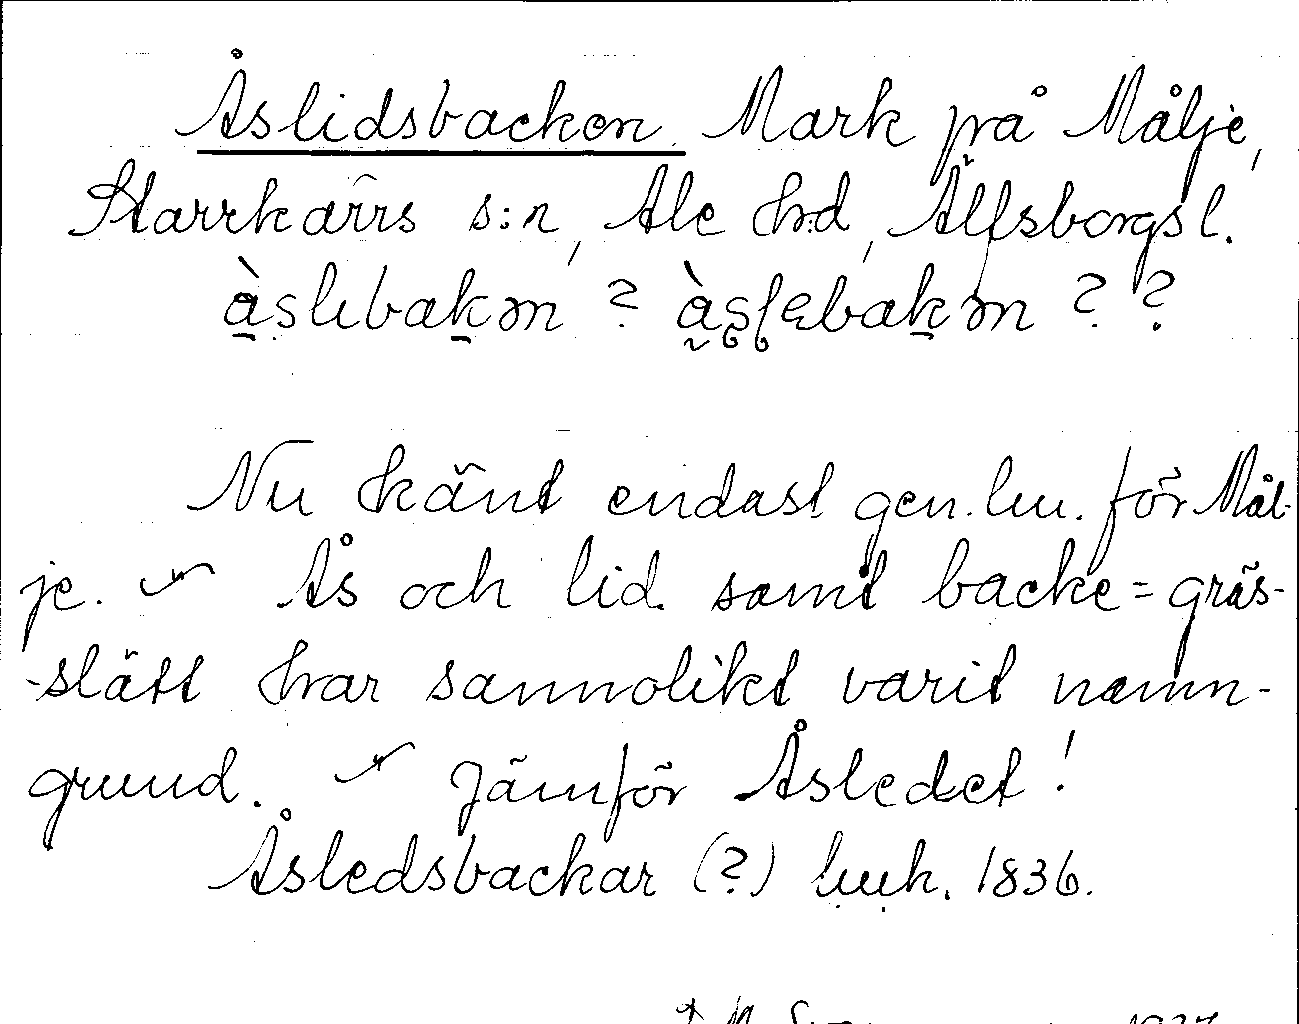 Åslidsbacken. Mark på Målje,
Starrkärrs s:n, Ale hd, Älfsborgs l.
à̱slıbaḵən ? à̰s̨l̨ɛbaḵən ? ?
Nu känt endast gen. lm. för Mål-
je. Ås och lid samt backe = gräs-
-slätt har sannolikt varit namn-
grund. Jämför Åsledet!
Åsledsbackar (?) lmk. 1836.